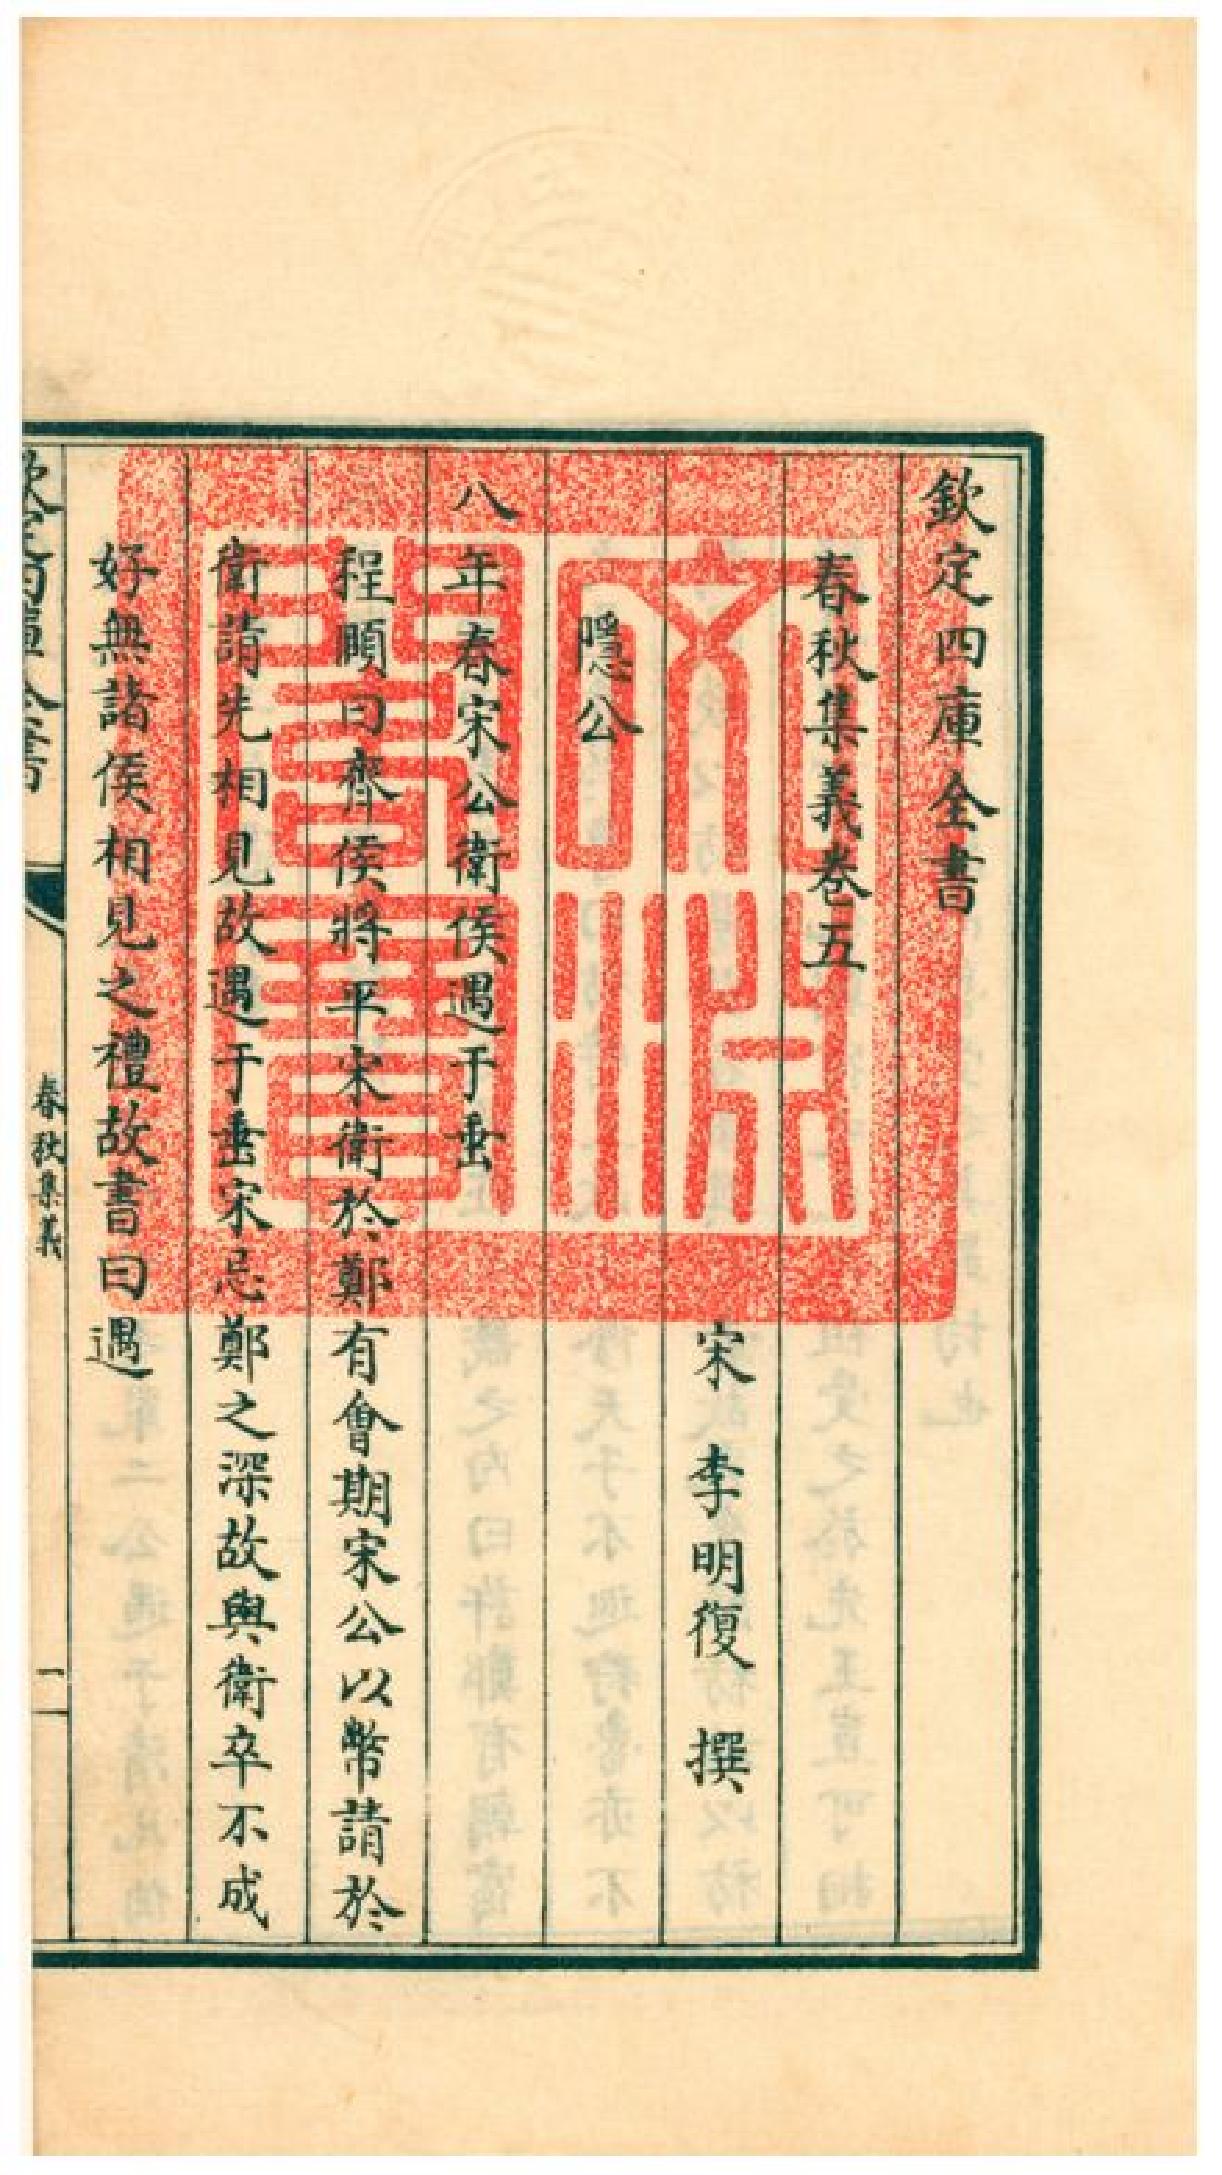 欽定四庫全書
春秋集義卷五
宋 李明復 撰
隱公
八年春宋公衛侯遇于垂
程頤曰齊侯將平宋衛於鄭有會期宋公以幣請於
衛請先相見故遇于垂宋忌鄭之深故與衛卒不成
好無諸侯相見之禮故書曰遇
欽定四庫全書
春秋集義
一
文淵閣寶